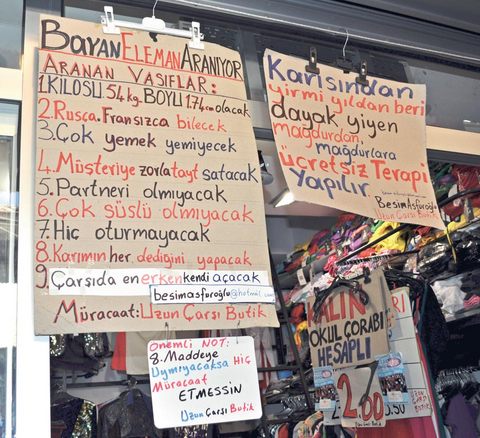 BayanElemanAranıyor
Aranan Vasıflar:
1.Kilosu 54kg.Boyu 1.74cm olacak
2.Rusca.Fransızca bilecek
3.Çok yemek yemiyecek
4.Müşteriye zorla tayt satacak
5.Partneri olmıyacak
6.Çok süslü olmıyacak
7.Hiç oturmayacak
8.Karımın her dediğini yapacak
9. Çarşıda en erken kendi açacak
besimasfuroğlu@hotmail.com
Müracaat:Uzun Çarşı Butik
Önemli Not:
8.Maddeye
Uymıyacaksa Hiç
Müracaat
Etmessin
Uzun Çarşı Butik
Karısından
yirmi yıldan beri
dayak yiyen
mağdurdan
mağdurlara
ücretsiz Terapi
Yapılır.
Besim Asfuroğlu
Uzun Çarşı Butik
Okul Çorabı
Hesaplı
2.60